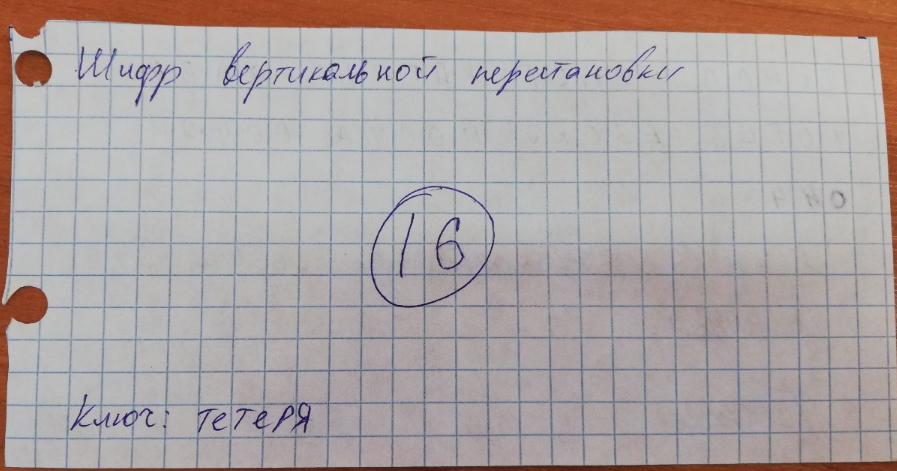 Шифр вертикальной перестановки
16
Ключ: ТЕТЕРЯ